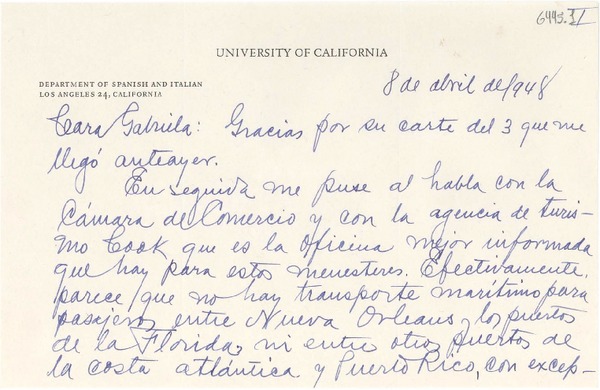 6445.II
UNIVERSITY OF CALIFORNIA
DEPARTMENT OF SPANISH AND ITALIAN
LOS ANGELES 24, CALIFORNIA
8 de abril de 1948
Cara Gabriela: Gracias por su carta del 3 que me
llegó anteayer.
En seguida me puse al habla con la
Cámara de Comercio y con la agencia de turis-
mo Cook que es la oficina mejor informada
que hay para estos menesteres. Efectivamente,
parece que no hay transporte marítimo para
pasajeros entre Nueva Orleans, los puertos
de la Florida, ni entre otros puertos de
la costa atlántica y Puerto Rico, con excep-